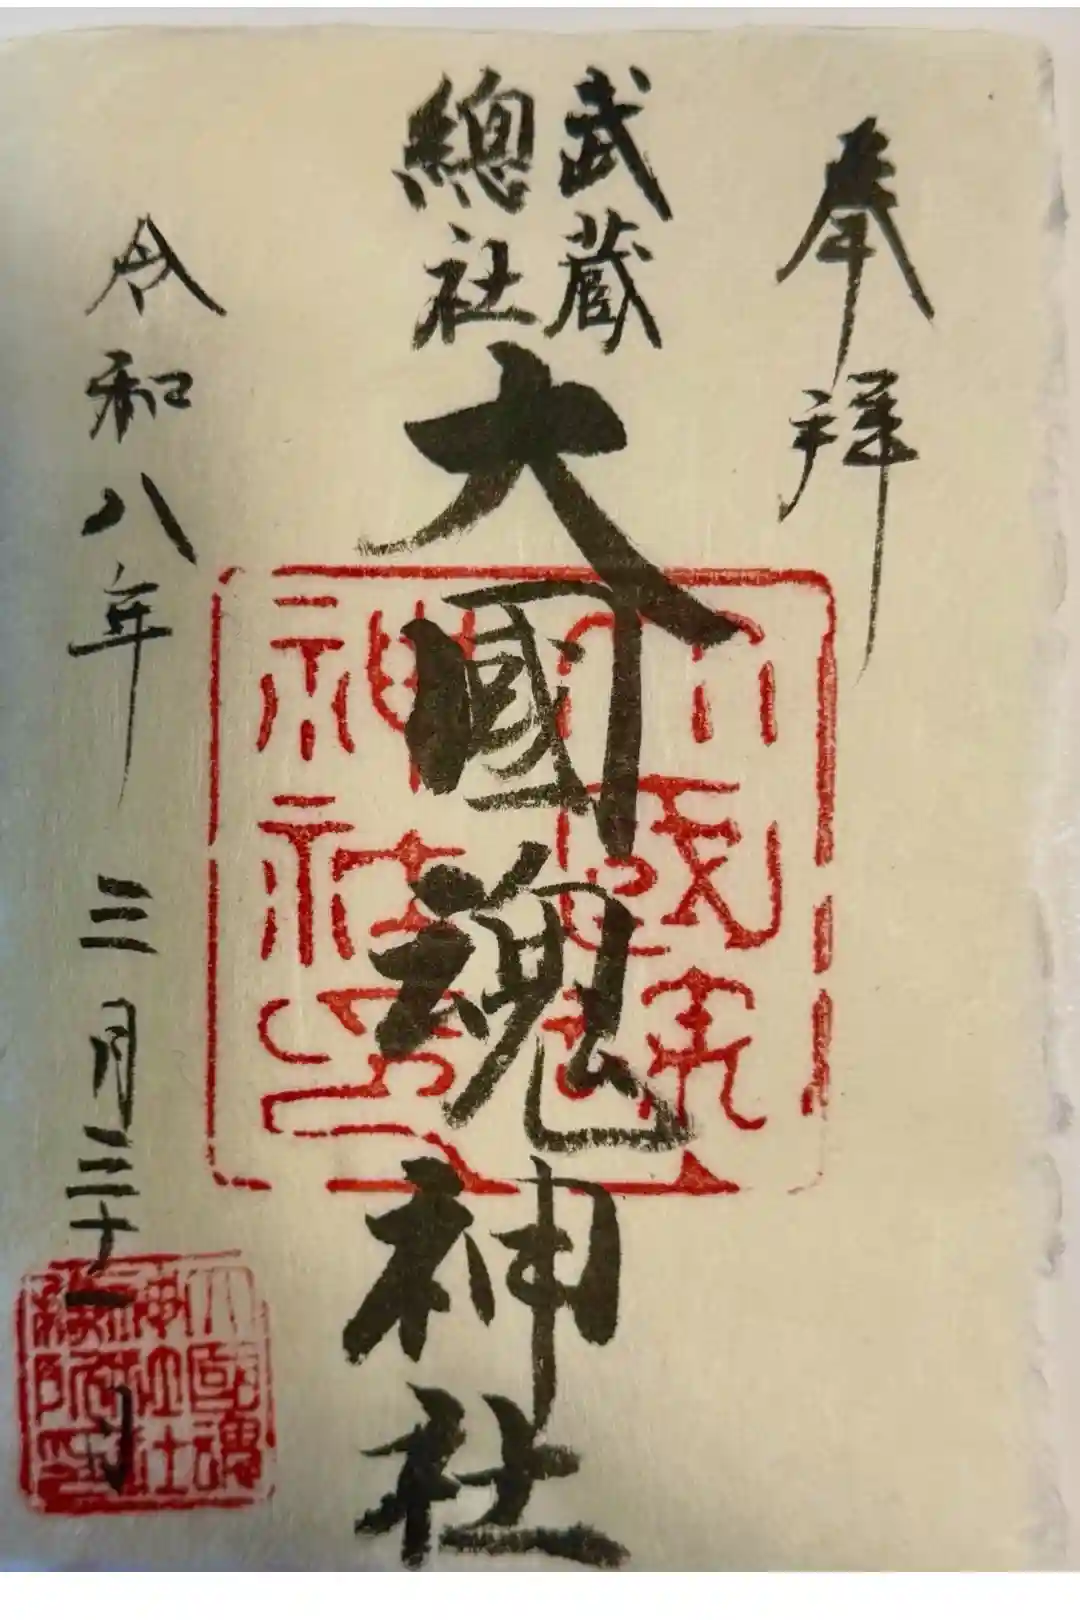 奉拝
武蔵
總社
大國魂神社
令和八年 三月三十一日
大國魂
神社印